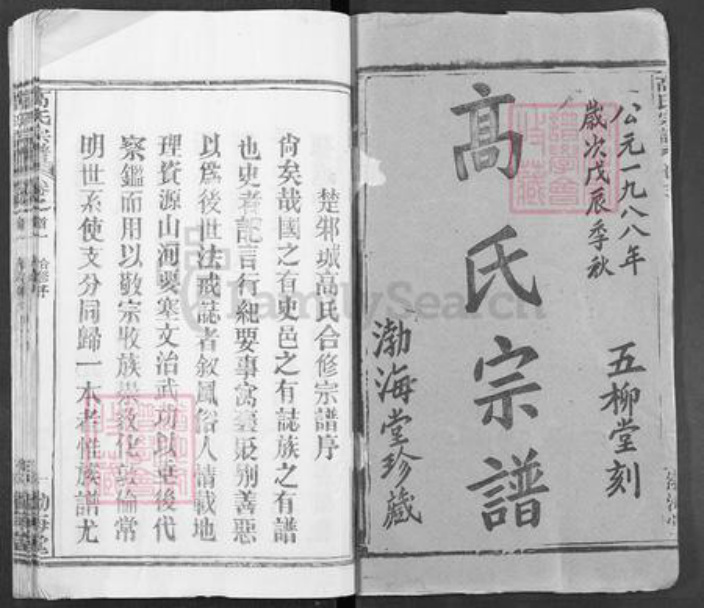 公元一九八八年
歲次戊辰季秋
五柳堂刻
高氏宗譜
渤海堂珍藏
楚邾城高氏合修宗譜序
尚矣哉國之有史邑之有誌族之有譜
也史者記言行紀要事寓襃貶別善惡
以為後世法戒誌者敘風俗人情載地
理資源山河要塞文治武功以垂後代
察鑑而用以敬宗收族崇教化敦倫常
明世系使支分同歸一本者惟族譜尤
高氏宗譜
卷之首
渤海堂
FamilySearch